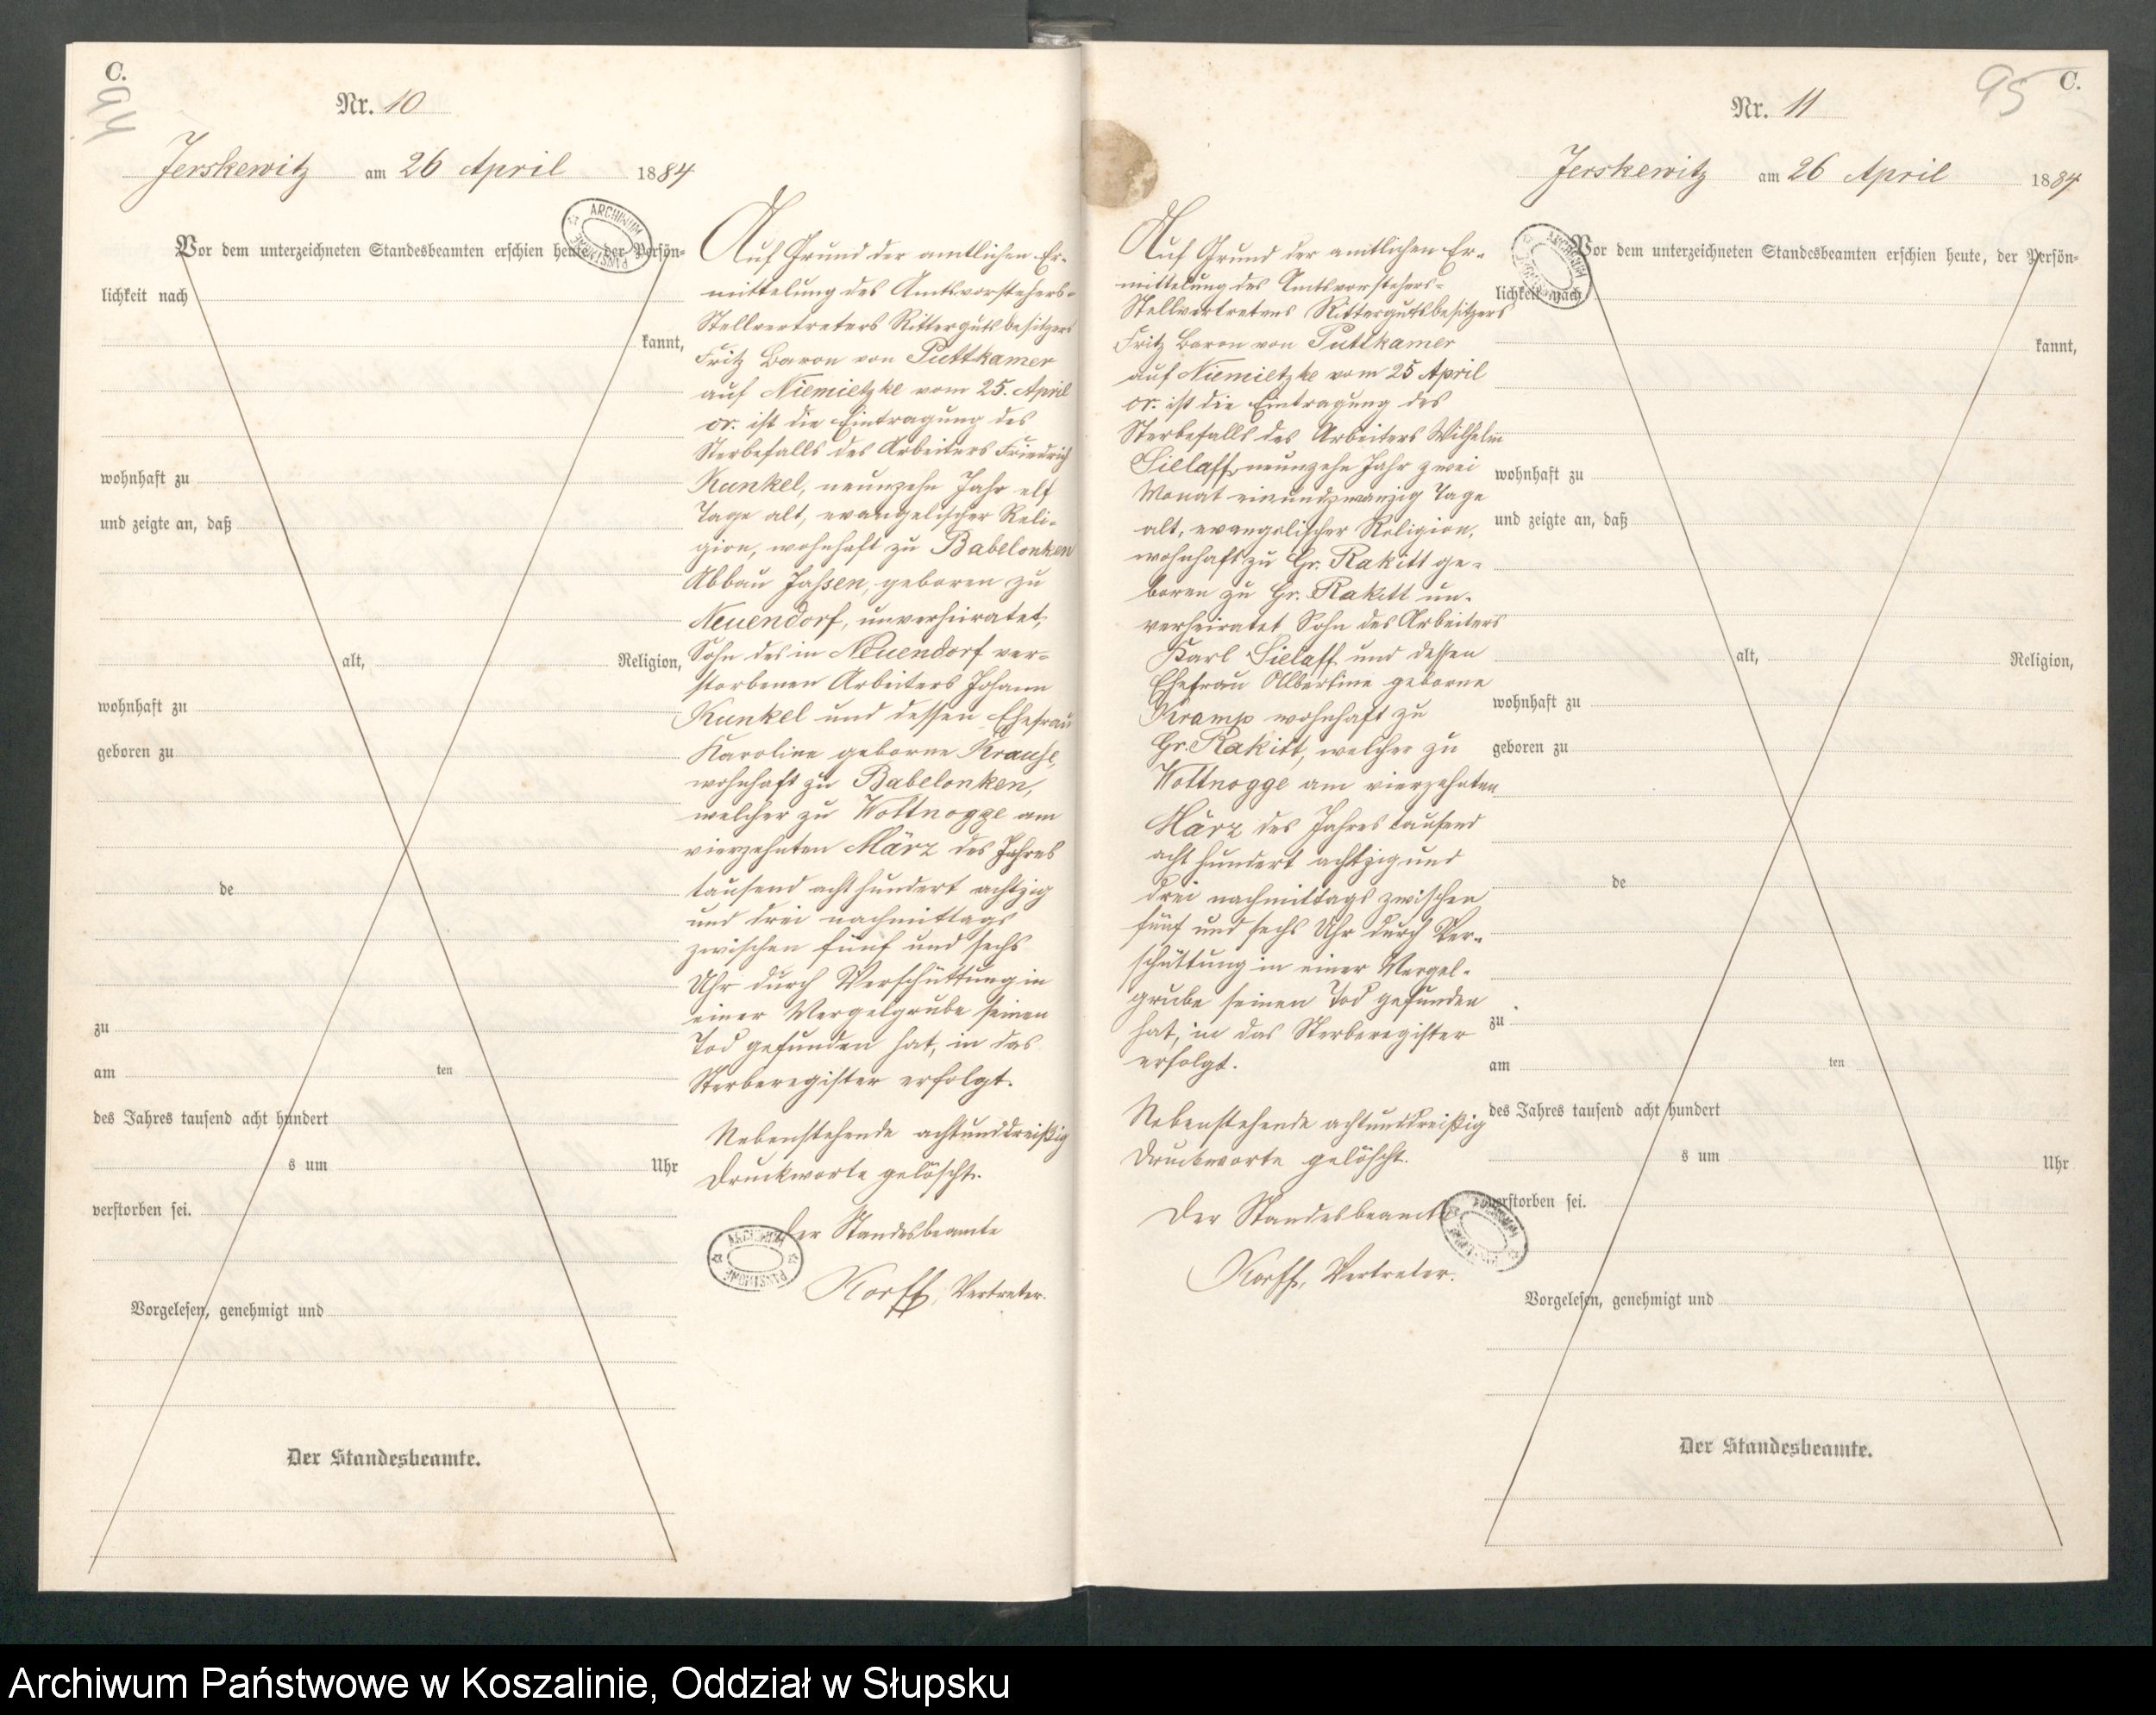 C.
94
Nr. 10
Jerskewitz am 26 April 1884
Vor dem unterzeichneten Standesbeamten erschien heute, der Persön-
lichkeit nach
kannt,
wohnhaft zu
und zeigte an, daß
alt, Religion,
wohnhaft zu
geboren zu
de
zu
am ten
des Jahres tausend acht hundert
s um Uhr
verstorben sei.
Vorgelesen, genehmigt und
Der Standesbeamte.
Auf Grund der amtlichen Er-
mittelung des Amtsvorstehers-
Stellvertreters Rittergutsbesitzers
Fritz Baron von Puttkamer
auf Niemietzke vom 25. April
cr. ist die Eintragung des
Sterbefalls des Arbeiters Friedrich
Kunkel, neunzehn Jahr elf
Tage alt, evangelischer Reli-
gion, wohnhaft zu Babelonken
Abbau Jassen, geboren zu
Neuendorf, unverheiratet,
Sohn des in Neuendorf ver-
storbenen Arbeiters Johann
Kunkel und dessen Ehefrau
Karoline geborne Krause,
wohnhaft zu Babelonken,
welcher zu Wottnogge am
vierzehnten März des Jahres
tausend acht hundert achtzig
und drei nachmittags
zwischen fünf und sechs
Uhr durch Verschüttung in
einer Mergelgrube seinen
Tod gefunden hat, in das
Sterberegister erfolgt.
Nebenstehende achtunddreißig
Druckworte gelöscht.
Der Standesbeamte
Korff, Vertreter.
ARCHIWUM PAŃSTWOWE
ARCHIWUM PAŃSTWOWE
95
C.
Nr. 11
Jerskewitz am 26 April 1884
Auf Grund der amtlichen Er-
mittelung des Amtsvorstehers-
Stellvertreters Rittergutsbesitzers
Fritz Baron von Puttkamer
auf Niemietzke vom 25 April
cr. ist die Eintragung des
Sterbefalls des Arbeiters Wilhelm
Sielaff, neunzehn Jahr zwei
Monat einundzwanzig Tage
alt, evangelischer Religion,
wohnhaft zu Gr. Rakitt ge-
boren zu Gr. Rakitt un-
verheiratet Sohn des Arbeiters
Karl Sielaff und dessen
Ehefrau Albertine geborne
Kramp wohnhaft zu
Gr. Rakitt, welcher zu
Wottnogge am vierzehnten
März des Jahres tausend
acht hundert achtzig und
drei nachmittags zwischen
fünf und sechs Uhr durch Ver-
schüttung in einer Mergel-
grube seinen Tod gefunden
hat, in das Sterberegister
erfolgt.
Nebenstehende achtunddreißig
Druckworte gelöscht.
Der Standesbeamte
Korff, Vertreter.
Vor dem unterzeichneten Standesbeamten erschien heute, der Persön-
lichkeit nach
kannt,
wohnhaft zu
und zeigte an, daß
alt, Religion,
wohnhaft zu
geboren zu
de
zu
am ten
des Jahres tausend acht hundert
s um Uhr
verstorben sei.
Vorgelesen, genehmigt und
Der Standesbeamte.
Archiwum Państwowe w Koszalinie, Oddział w Słupsku